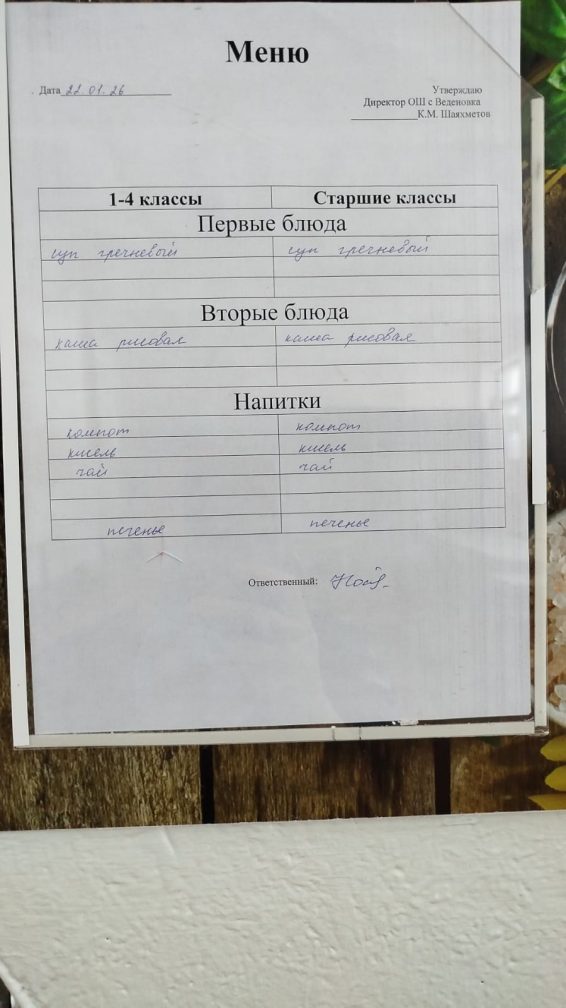 Меню
Дата 22.01.26
Утверждаю
Директор ОШ с Веденовка
К.М. Шаяхметов
1-4 классы Старшие классы
Первые блюда
суп гречневый суп гречневый
Вторые блюда
каша рисовая каша рисовая
Напитки
компот компот
кисель кисель
чай чай
печенье печенье
Ответственный: